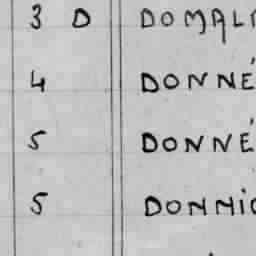 3 D DOMAL
4 DONNÉ
5 DONNÉ
5 DONNI